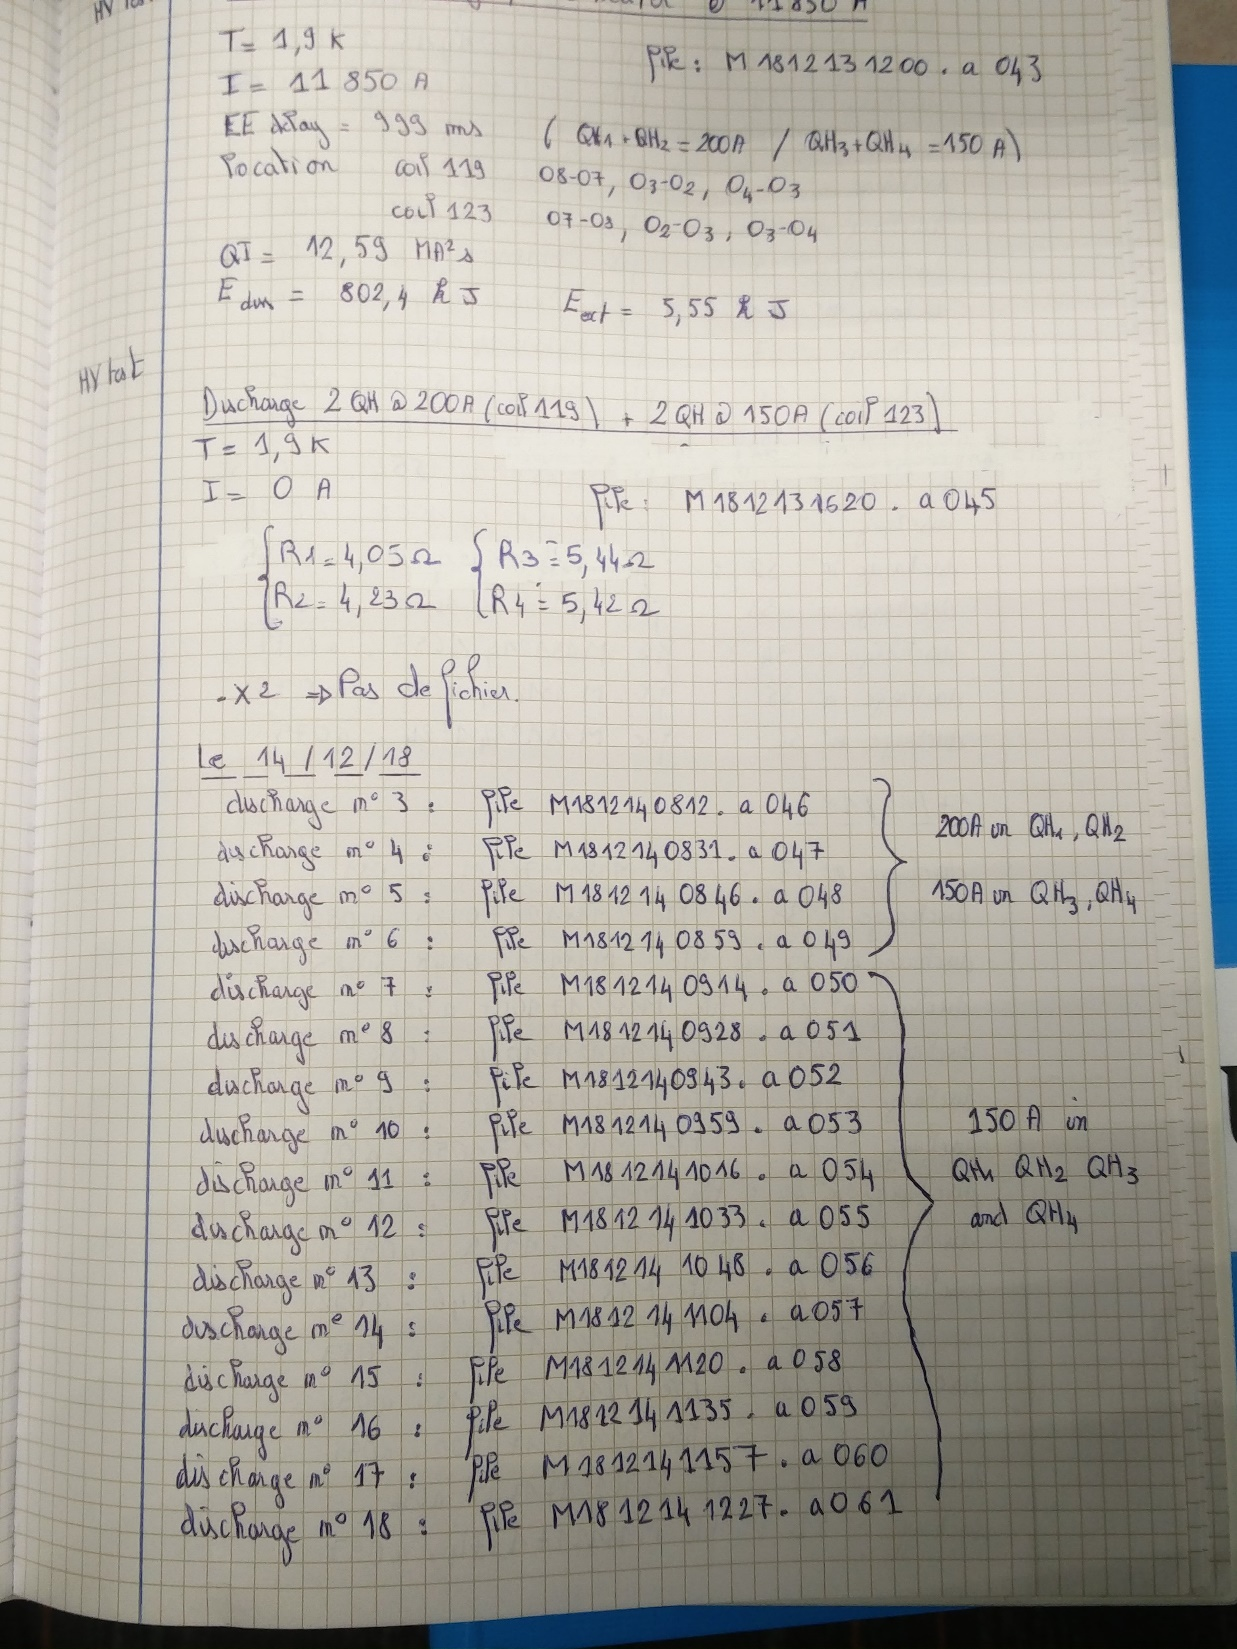 HV
@ 11850 A
T = 1,9 K
file : M1812131200.a043
I = 11 850 A
EE delay = 999 ms ( QH1+QH2 = 200A / QH3+QH4 = 150 A)
location coil 119 08-07, 03-02, 04-03
coil 123 07-08, 02-03, 03-04
QI = 12,59 MA²s
E dum = 802,4 kJ E ext = 5,55 kJ
HV test
Discharge 2 QH @ 200A (coil 119) + 2 QH @ 150A (coil 123)
T = 1,9 K
I = 0 A file : M1812131620.a045
R1 = 4,05 Ω R3 = 5,44 Ω
R2 = 4,23 Ω R4 = 5,42 Ω
- x2 => Pas de fichier.
Le 14/12/18
discharge n° 3 : file M1812140812.a046
discharge n° 4 : file M1812140831.a047
discharge n° 5 : file M1812140846.a048
discharge n° 6 : file M1812140859.a049
200A in QH1, QH2
150A in QH3, QH4
discharge n° 7 : file M1812140914.a050
discharge n° 8 : file M1812140928.a051
discharge n° 9 : file M1812140943.a052
discharge n° 10 : file M1812140959.a053
discharge n° 11 : file M1812141016.a054
discharge n° 12 : file M1812141033.a055
discharge n° 13 : file M1812141048.a056
discharge n° 14 : file M1812141104.a057
discharge n° 15 : file M1812141120.a058
discharge n° 16 : file M1812141135.a059
discharge n° 17 : file M1812141157.a060
discharge n° 18 : file M1812141227.a061
150 A in
QH1 QH2 QH3
and QH4